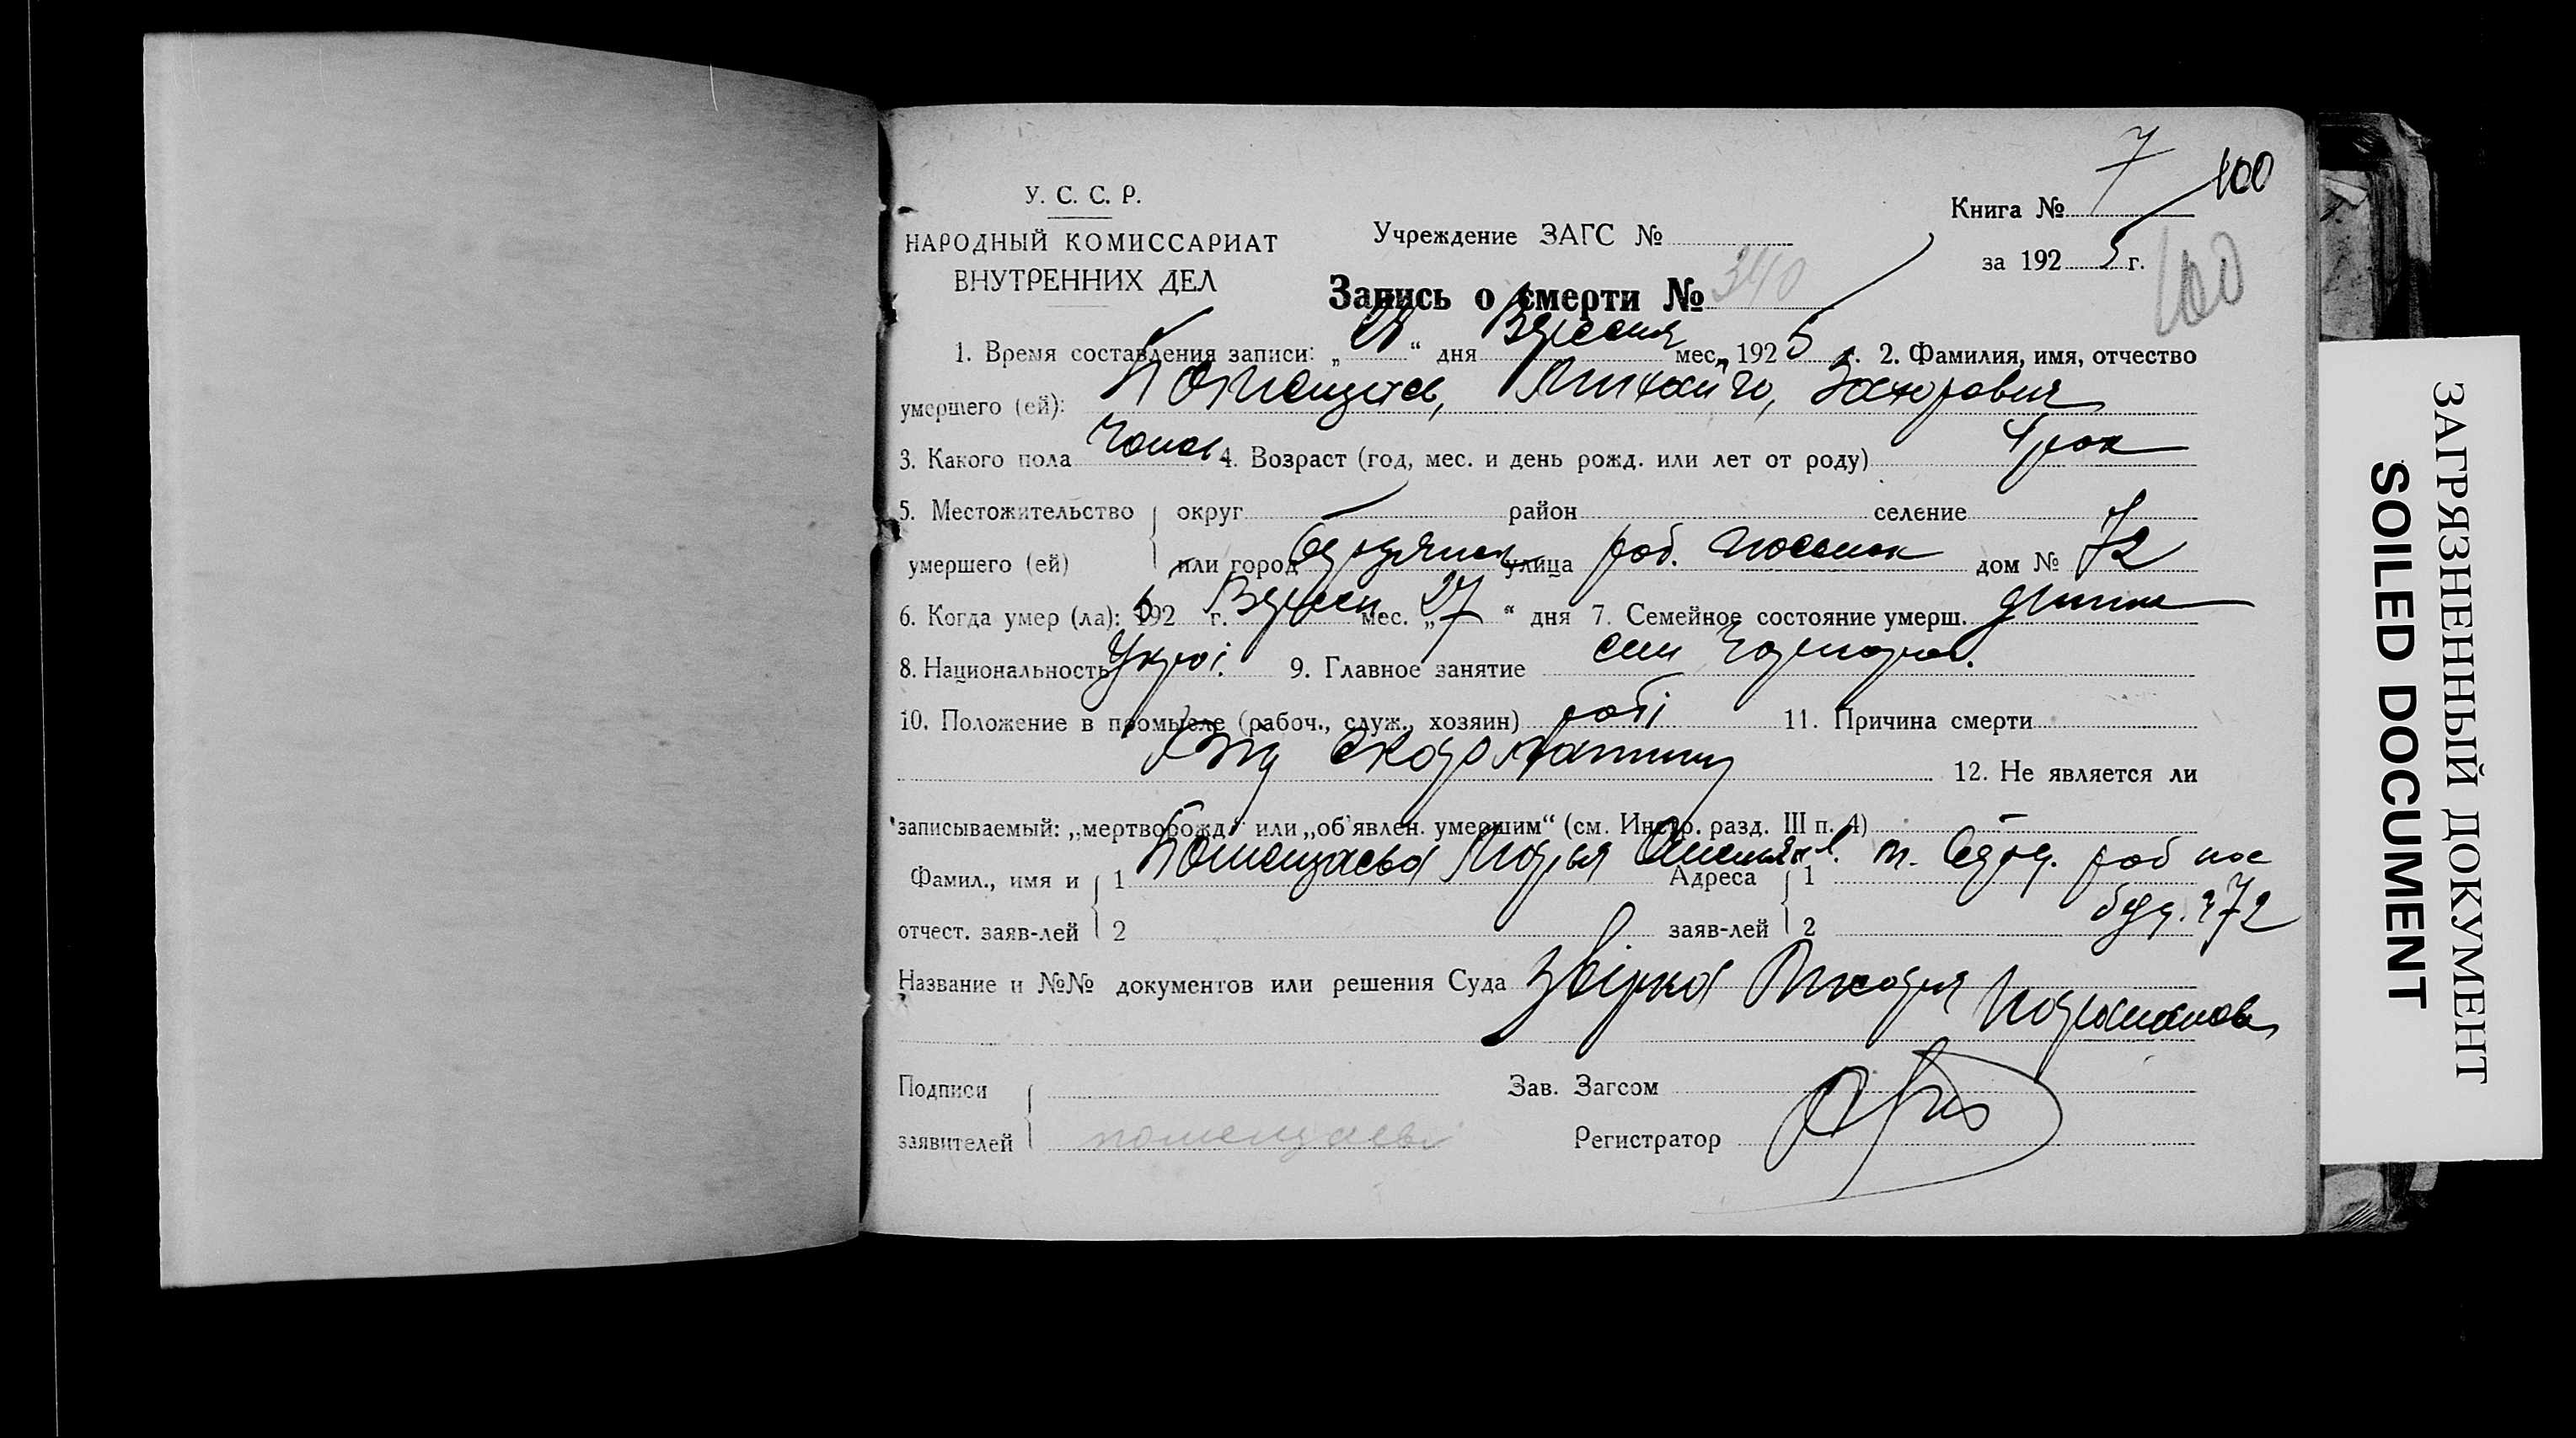 7 100
У. С. С. Р.
НАРОДНЫЙ КОМИССАРИАТ
ВНУТРЕННИХ ДЕЛ
Учреждение ЗАГС №
Книга №
за 1925 г.
100
Запись о смерти № 340
1. Время составления записи: „ “ дня Вересня мес. 1925 г. 2. Фамилия, имя, отчество
умершего (ей):
3. Какого пола 4. Возраст (год, мес. и день рожд. или лет от роду) 1 рок
5. Местожительство округ район селение
умершего (ей) или город улица роб. поселок дом № 72
6. Когда умер (ла): 192 г. Вересн мес. „27“ дня 7. Семейное состояние умерш. дитина
8. Национальность Украї. 9. Главное занятие син
10. Положение в промысле (рабоч., служ., хозяин) робі 11. Причина смерти
Від скарлатини 12. Не является ли
записываемый: „мертворожд.“ или „об'явлен. умершим“ (см. Инстр. разд. III п. 4) —
Фамил., имя и 1 Помещаєва Марія Адреса 1 м. роб пос
отчест. заяв-лей 2 заяв-лей 2 буд. 72
Название и №№ документов или решения Суда
Подписи Зав. Загсом
заявителей помещаева Регистратор
ЗАГРЯЗНЕННЫЙ ДОКУМЕНТ
SOILED DOCUMENT